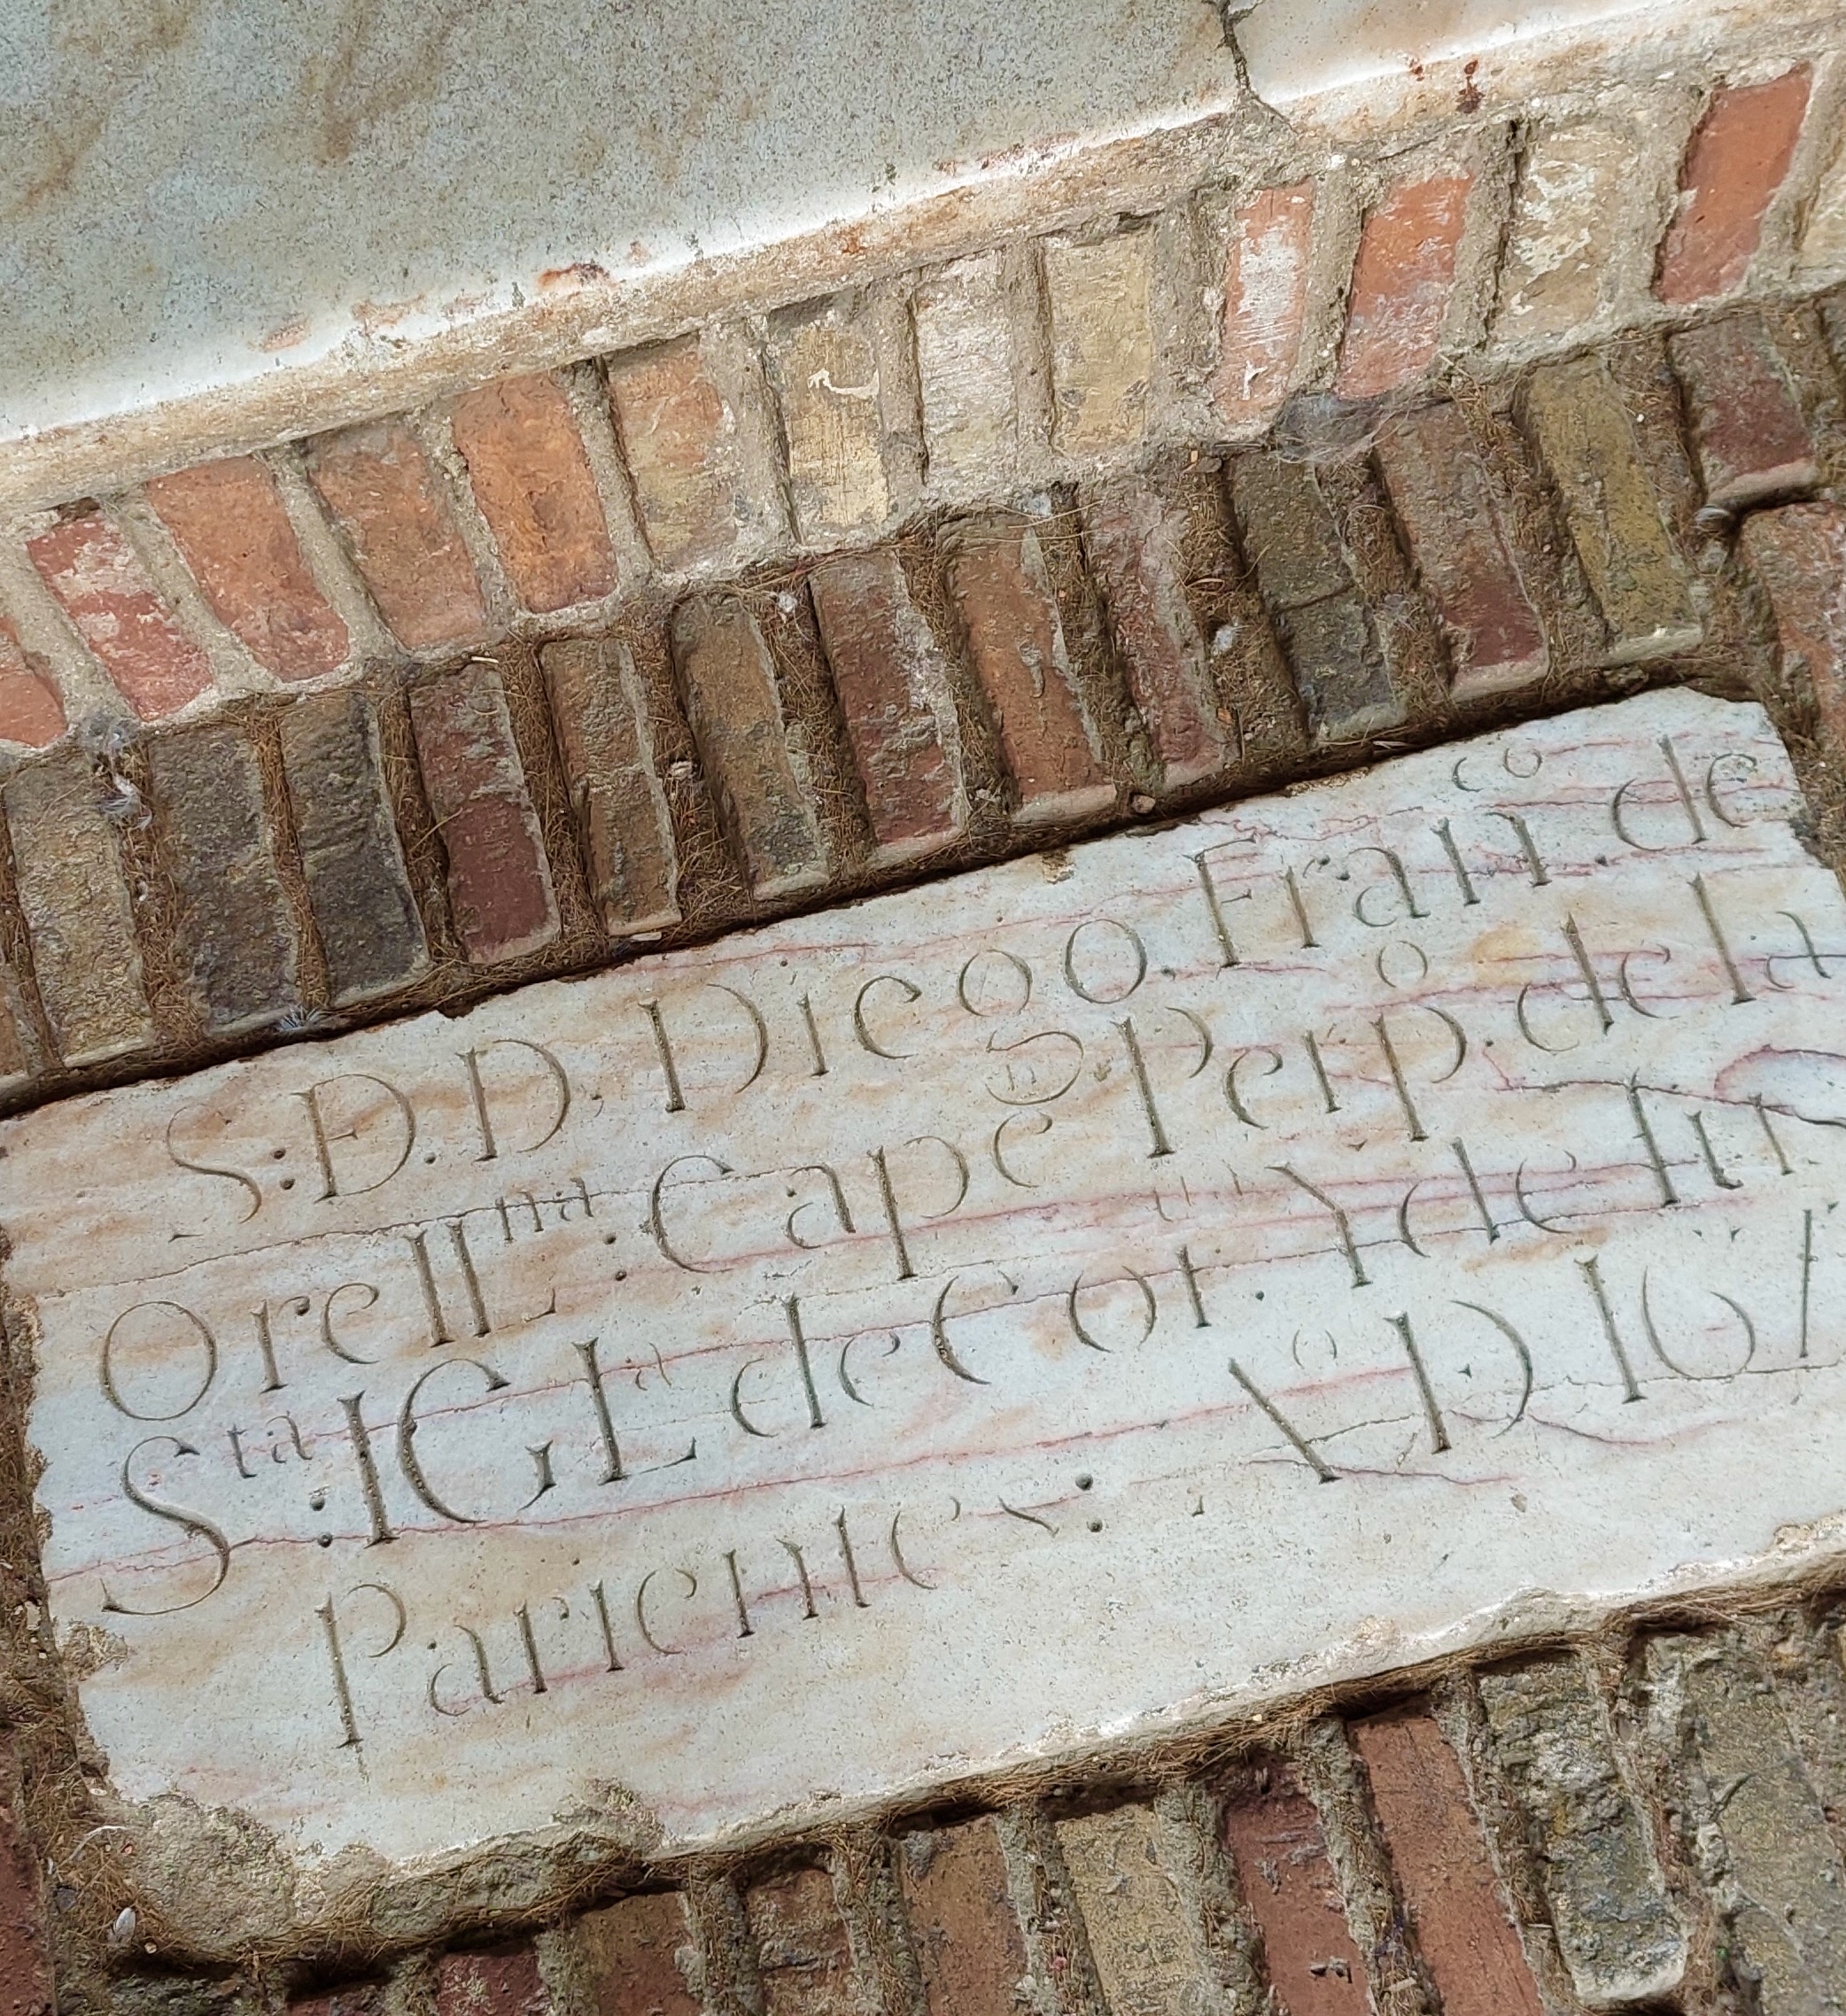 S:D.D. Diego. Fran.co de
OreLLna: Capen Perp.o de la
Sta: IGLa de Cor. Y de sus
Parientes: Ao D 167